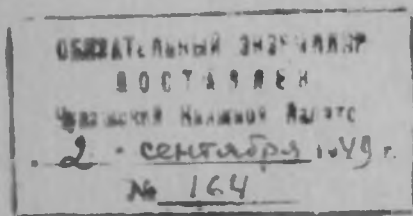 ОБЯЗАТЕЛЬНЫЙ ЭКЗЕМПЛЯР
ДОСТАВЛЕН
Книжной Палате
2 сентября 1949 г.
№ 164